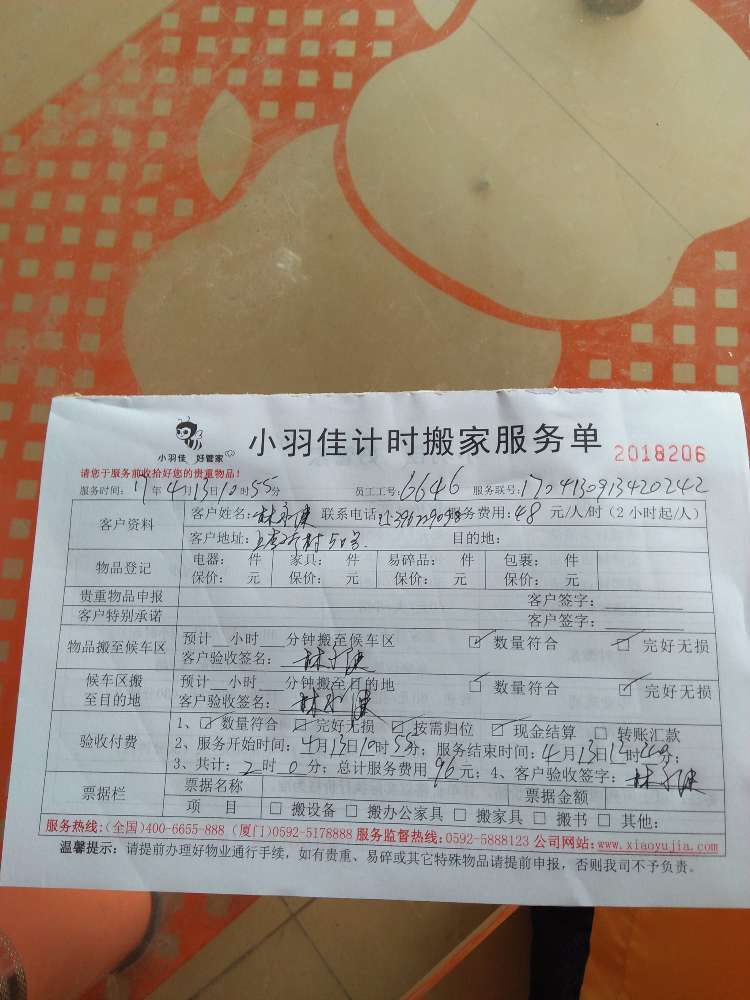 小羽佳 好管家
小羽佳计时搬家服务单 2018206
请您于服务前收拾好您的贵重物品!
服务时间: 17年4月13日10时55分 员工工号: 6646 服务联号: 1704130913420242
客户资料
客户姓名: 联系电话: 服务费用: 48 元/人/时 (2小时起/人)
客户地址: 村50号 目的地:
物品登记
电器: 件 家具: 件 易碎品: 件 包裹: 件
保价: 元 保价: 元 保价: 元 保价: 元
贵重物品申报 客户签字:
客户特别承诺 客户签字:
物品搬至候车区
预计__小时__分钟搬至候车区 ☑ 数量符合 □ 完好无损
客户验收签名:
候车区搬至目的地
预计__小时__分钟搬至目的地 □ 数量符合 ☑ 完好无损
客户验收签名:
验收付费
1、☑ 数量符合 □ 完好无损 □ 按需归位 ☑ 现金结算 □ 转账汇款
2、服务开始时间: 4月13日10时55分; 服务结束时间: 4月13日 时 分;
3、共计: 2时0分; 总计服务费用 96元; 4、客户验收签字:
票据栏
票据名称 票据金额
项 目 □ 搬设备 □ 搬办公家具 □ 搬家具 □ 搬书 □ 其他:
服务热线:(全国)400-6655-888 (厦门)0592-5178888 服务监督热线:0592-5888123 公司网站:www.xiaoyujia.com
温馨提示: 请提前办理好物业通行手续, 如有贵重、易碎或其它特殊物品请提前申报, 否则我司不予负责。